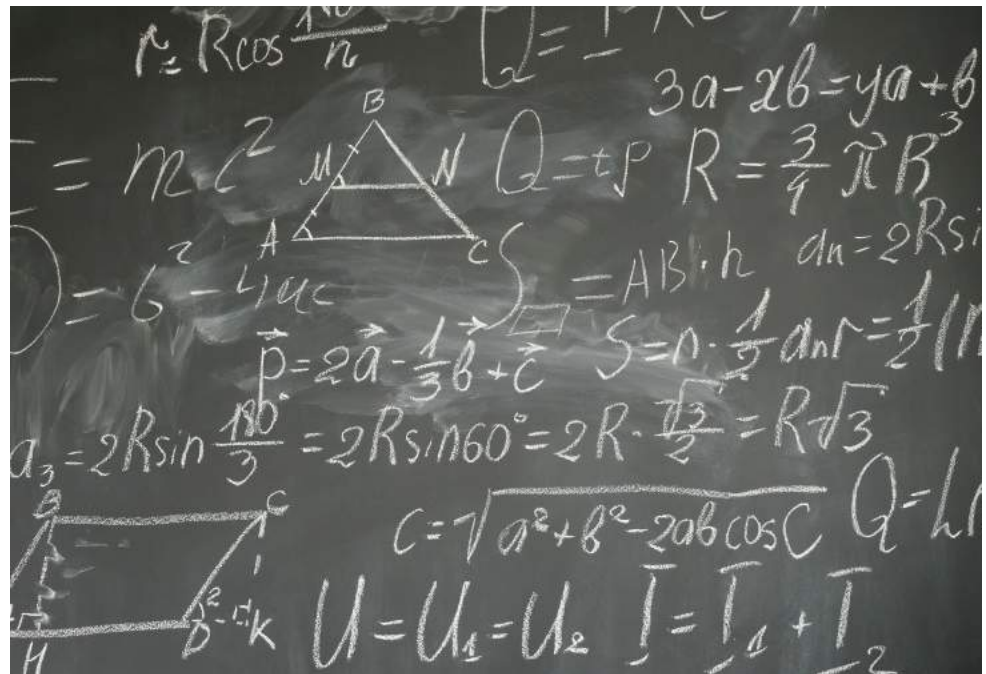 r = R cos 180/n
3a - xb = ya + b
= mc²
B
M N
A C
Q = tp
R = 3/4 πR³
D = b² - 4ac
S▱ = AB · h
an = 2Rsi
p⃗ = 2a⃗ - 1/3 b⃗ + c⃗
S = n · 1/2 anr = 1/2 (n
a₃ = 2Rsin 180°/3 = 2Rsin60° = 2R · √3/2 = R√3
B C
D 2 K
H
c = √a² + b² - 2ab cosC
Q = L
U = U₁ = U₂
I = I₁ + I₂